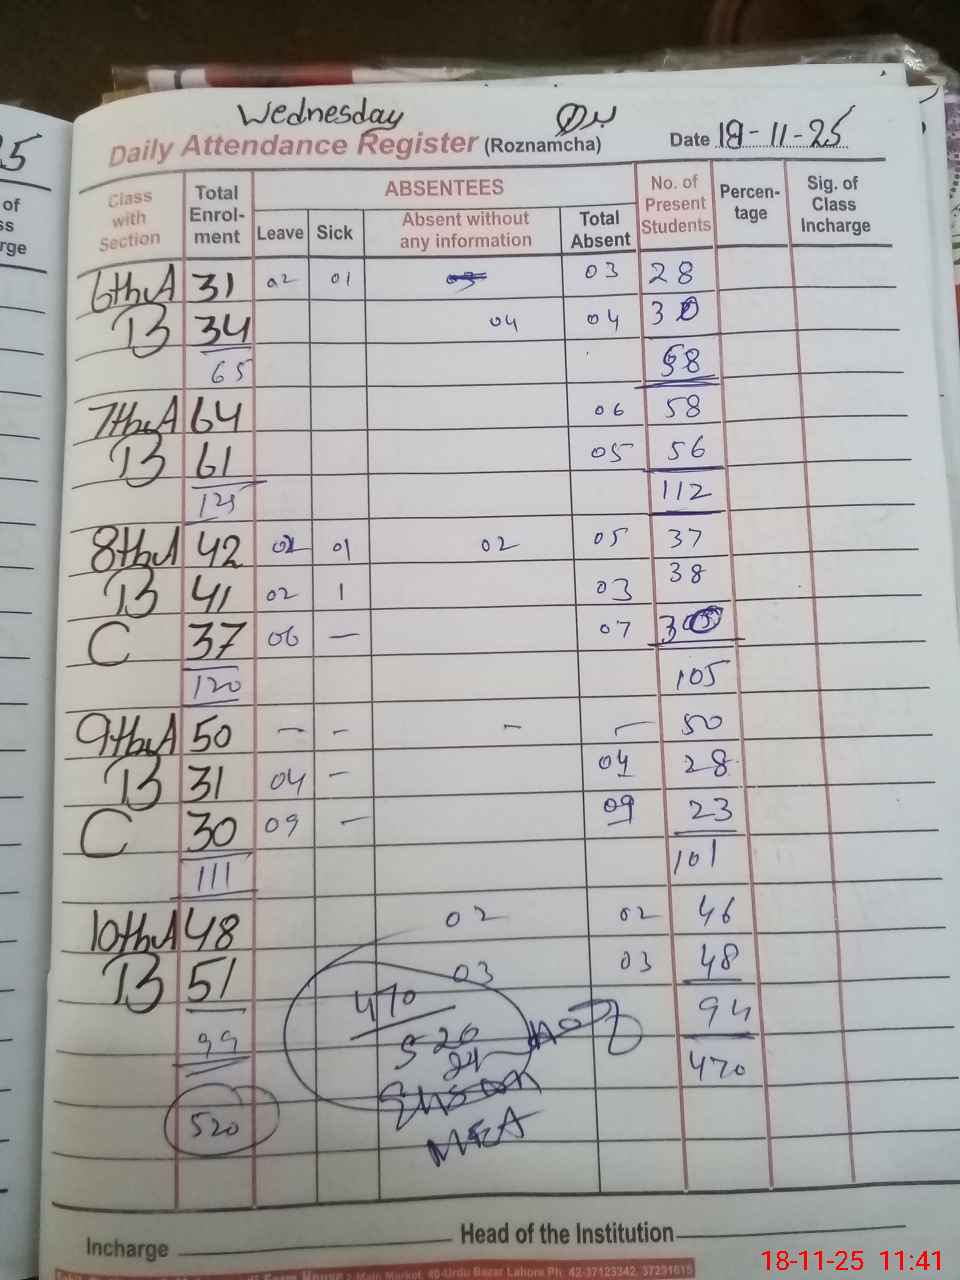 Wednesday بدھ
Daily Attendance Register (Roznamcha) Date 19-11-25
Class with Section Total Enrol-ment ABSENTEES No. of Present Students Percen-tage Sig. of Class Incharge
Leave Sick Absent without any information Total Absent
6th A 31 02 01 03 28
B 34 04 04 30
65 58
7th A 64 06 58
B 61 05 56
125 112
8th A 42 02 01 02 05 37
B 41 02 1 03 38
C 37 06 — 07 30
120 105
9th A 50 — - - — 50
B 31 04 - 04 28
C 30 09 — 09 23
111 101
10th A 48 02 02 46
B 51 03 03 48
99 470 94
520 470
24
520
Incharge Head of the Institution
2-Main Market, 40-Urdu Bazar Lahore Ph: 42-37123342, 37231615
18-11-25 11:41
5
of
ss
rge